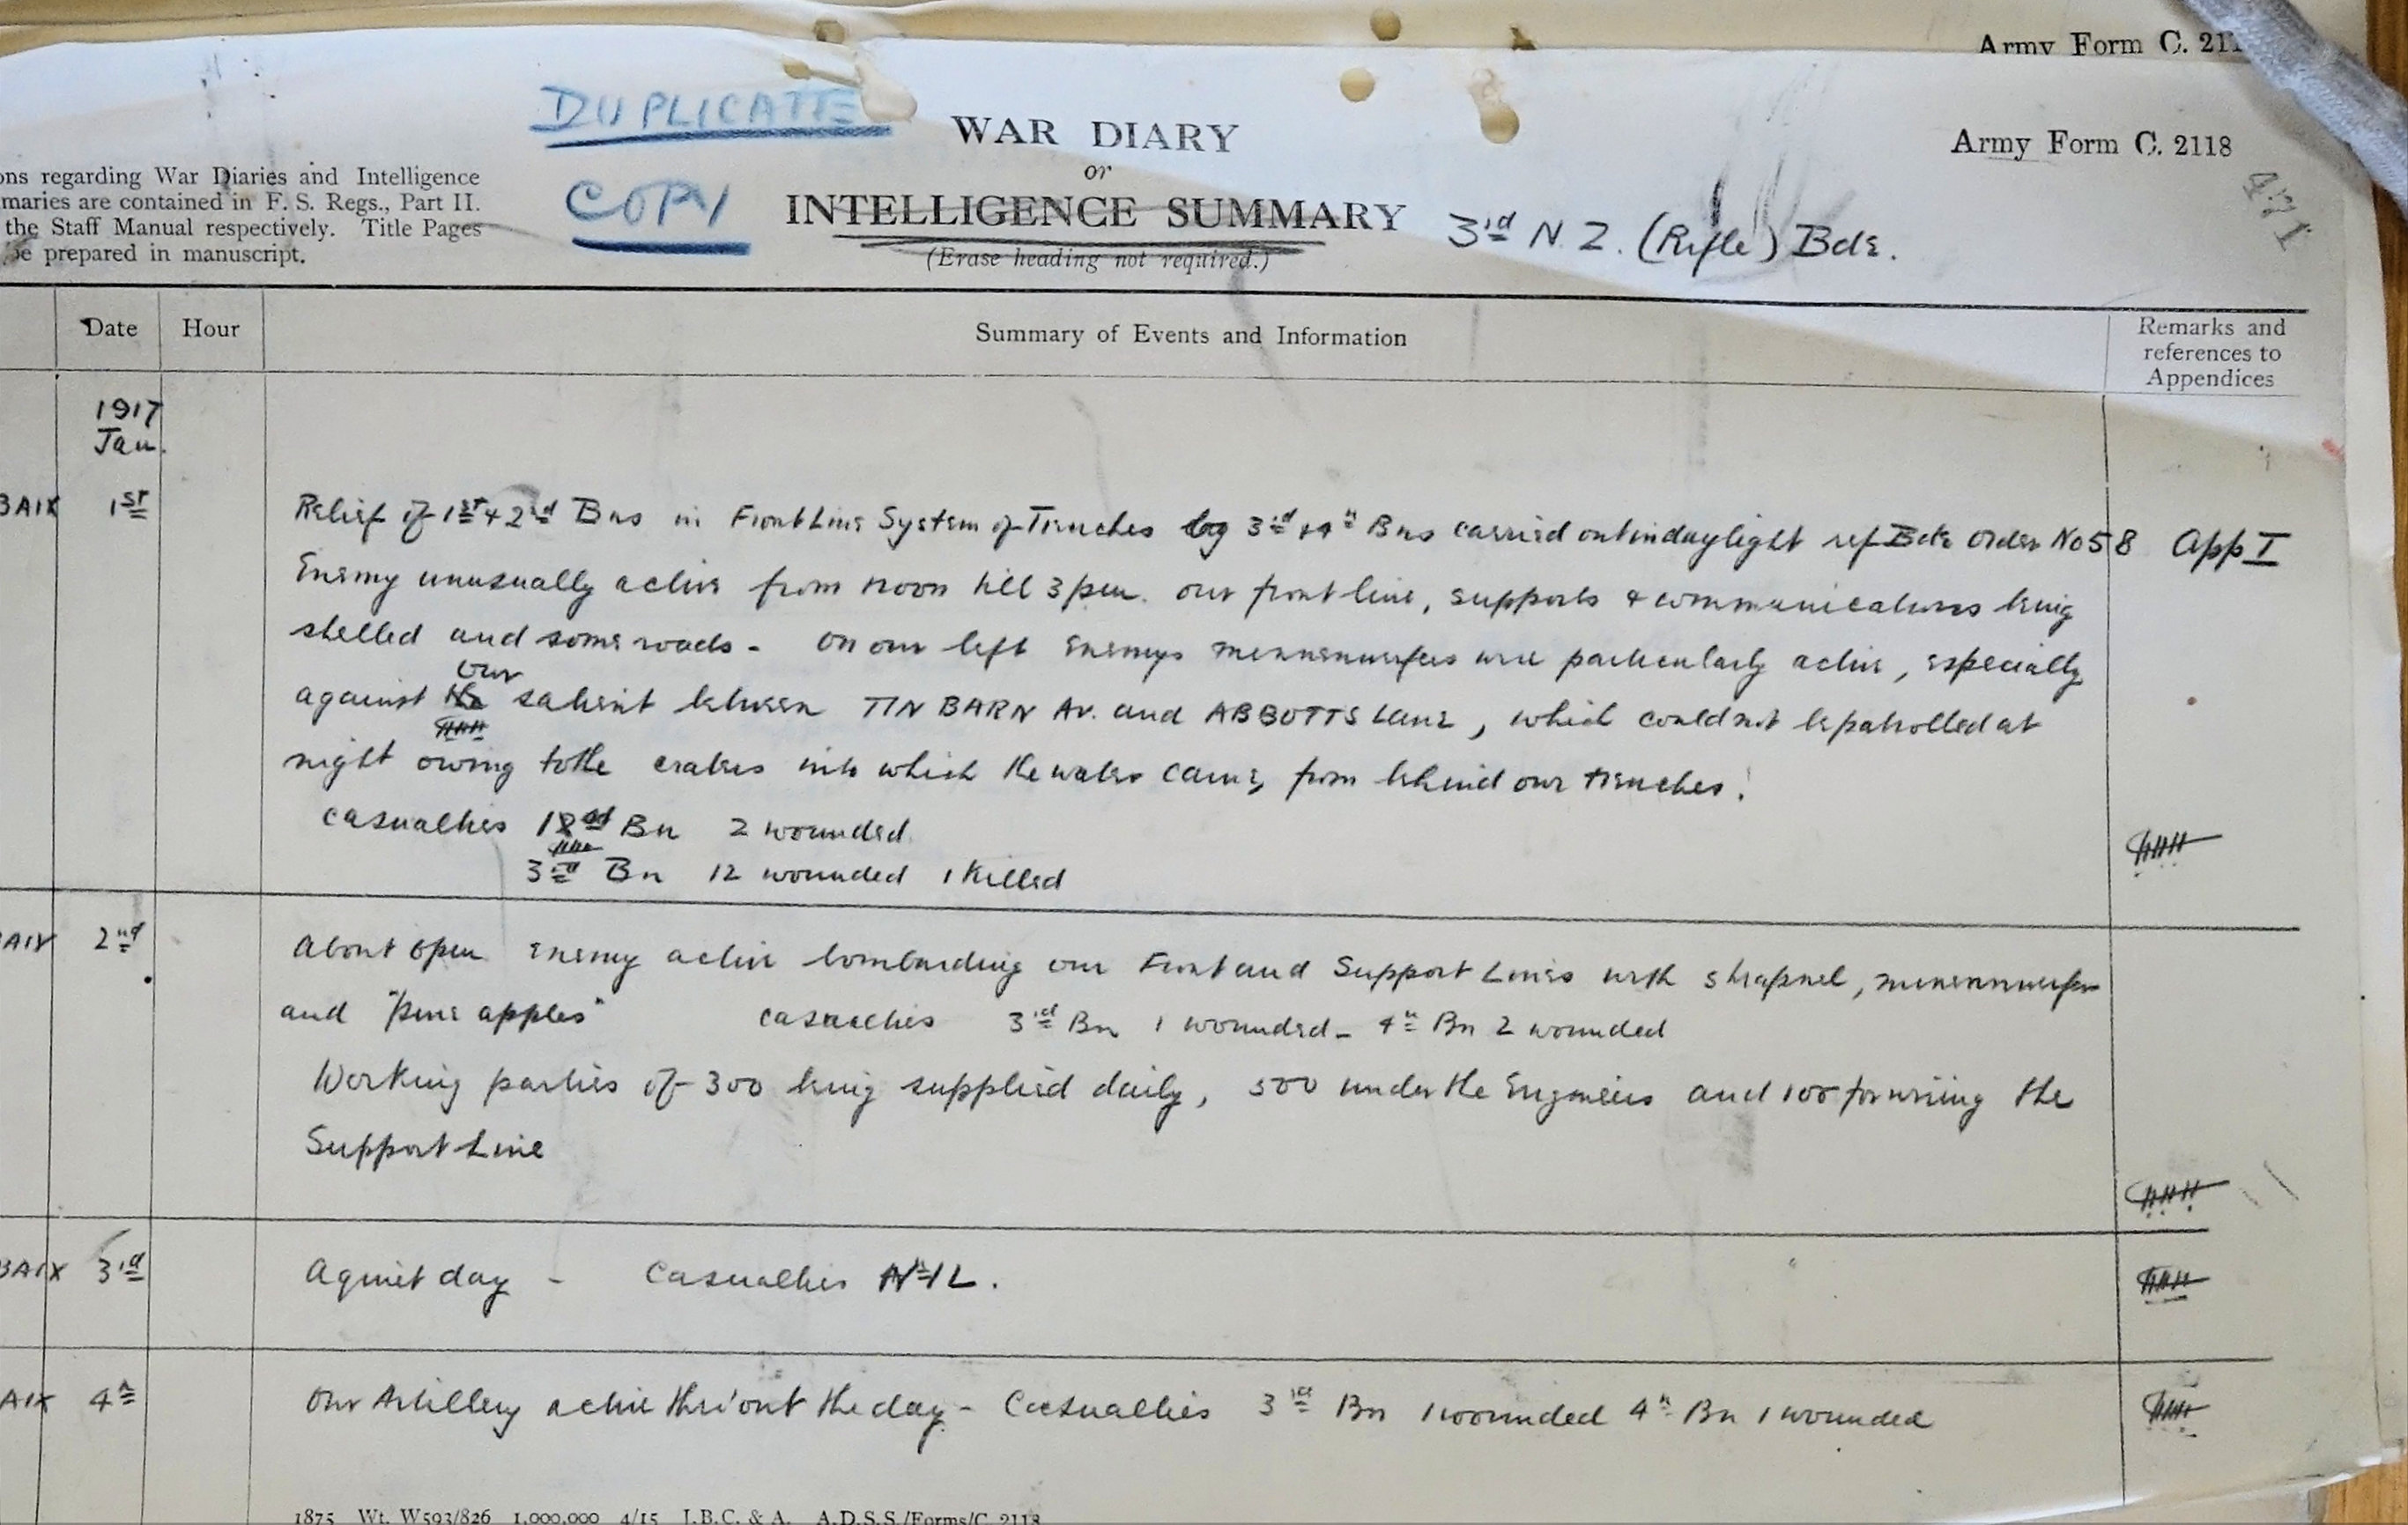 Army Form C. 211
DUPLICATE
COPY
WAR DIARY
or
INTELLIGENCE SUMMARY
(Erase heading not required.)
3rd N.Z. (Rifle) Bde.
Army Form C. 2118
471
ons regarding War Diaries and Intelligence
maries are contained in F. S. Regs., Part II.
the Staff Manual respectively. Title Pages
be prepared in manuscript.
Date Hour Summary of Events and Information Remarks and references to Appendices
1917
Jan.
BAIX 1st Relief of 1st & 2nd Bns in Front Line System of Trenches by 3rd & 4th Bns carried out in daylight ref Bde Order No 58 App I
Enemy unusually active from noon till 3 pm. our front line, supports & communications being
shelled and some roads - On our left Enemys minnenwerfers were particularly active, especially
against the our salient between TIN BARN AV. and ABBOTTS Lane, which could not be patrolled at
night owing to the craters into which the water came, from behind our trenches!
Casualties 1st Bn 2 wounded
3rd Bn 12 wounded 1 killed
AIX 2nd About 6pm Enemy active bombarding our Front and Support Lines with shrapnel, minnenwerfer
and "pine apples" casualties 3rd Bn 1 wounded - 4th Bn 2 wounded
Working parties of 300 being supplied daily, 500 under the Engineers and 100 for wiring the
Support Line
BAIX 3rd A quiet day - Casualties NIL.
AIX 4th Our Artillery active thro'out the day - Casualties 3rd Bn 1 wounded 4th Bn 1 wounded
1875 Wt. W593/826 1,000,000 4/15 J.B.C. & A. A.D.S.S./Forms/C. 2118